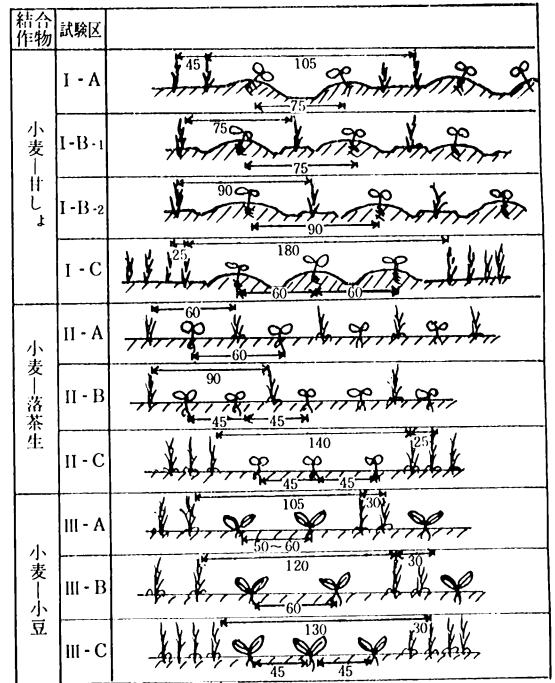 結合作物 試験区
小麦―甘しょ
I-A
45 105
75
I-B-1
75
75
I-B-2
90
90
I-C
25 180
60 60
小麦―落茶生
II-A
60
60
II-B
90
45 45
II-C
140 25
45 45
小麦―小豆
III-A
105 30
50~60
III-B
120 30
60
III-C
130 30
45 45